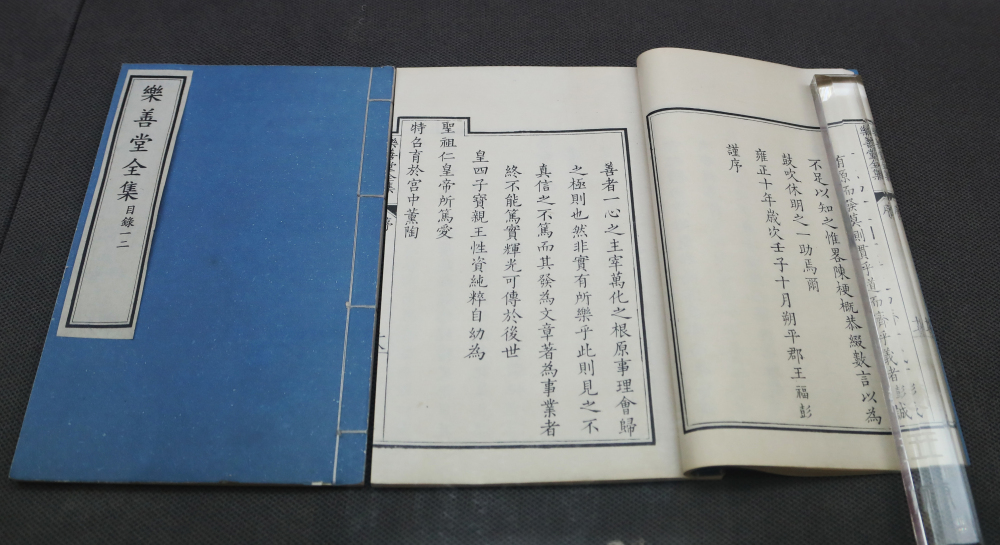 樂善堂全集
目錄一二
樂善堂全集
不足以知之惟畧陳梗概恭綴數言以為
鼓吹休明之一助焉爾
雍正十年歲次壬子十月朔平郡王福彭
謹序
善者一心之主宰萬化之根原事理會歸
之極則也然非實有所樂乎此則見之不
真信之不篤而其發為文章著為事業者
終不能篤實輝光可傳於後世
皇四子寶親王性資純粹自幼為
聖祖仁皇帝所篤愛
特召育於宮中薰陶
樂善堂全集
序